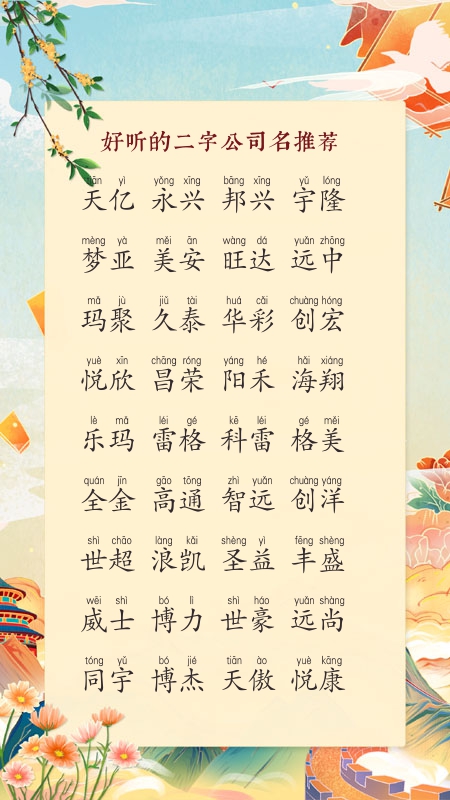 好听的二字公司名推荐
tiān yì yǒng xīng bāng xīng yǔ lóng
天亿 永兴 邦兴 宇隆
mèng yà měi ān wàng dá yuǎn zhōng
梦亚 美安 旺达 远中
mǎ jù jiǔ tài huá cǎi chuàng hóng
玛聚 久泰 华彩 创宏
yuè xīn chāng róng yáng hé hǎi xiáng
悦欣 昌荣 阳禾 海翔
lè mǎ léi gé kē léi gé měi
乐玛 雷格 科雷 格美
quán jīn gāo tōng zhì yuǎn chuàng yáng
全金 高通 智远 创洋
shì chāo làng kǎi shèng yì fēng shèng
世超 浪凯 圣益 丰盛
wēi shì bó lì shì háo yuǎn shàng
威士 博力 世豪 远尚
tóng yǔ bó jié tiān ào yuè kāng
同宇 博杰 天傲 悦康